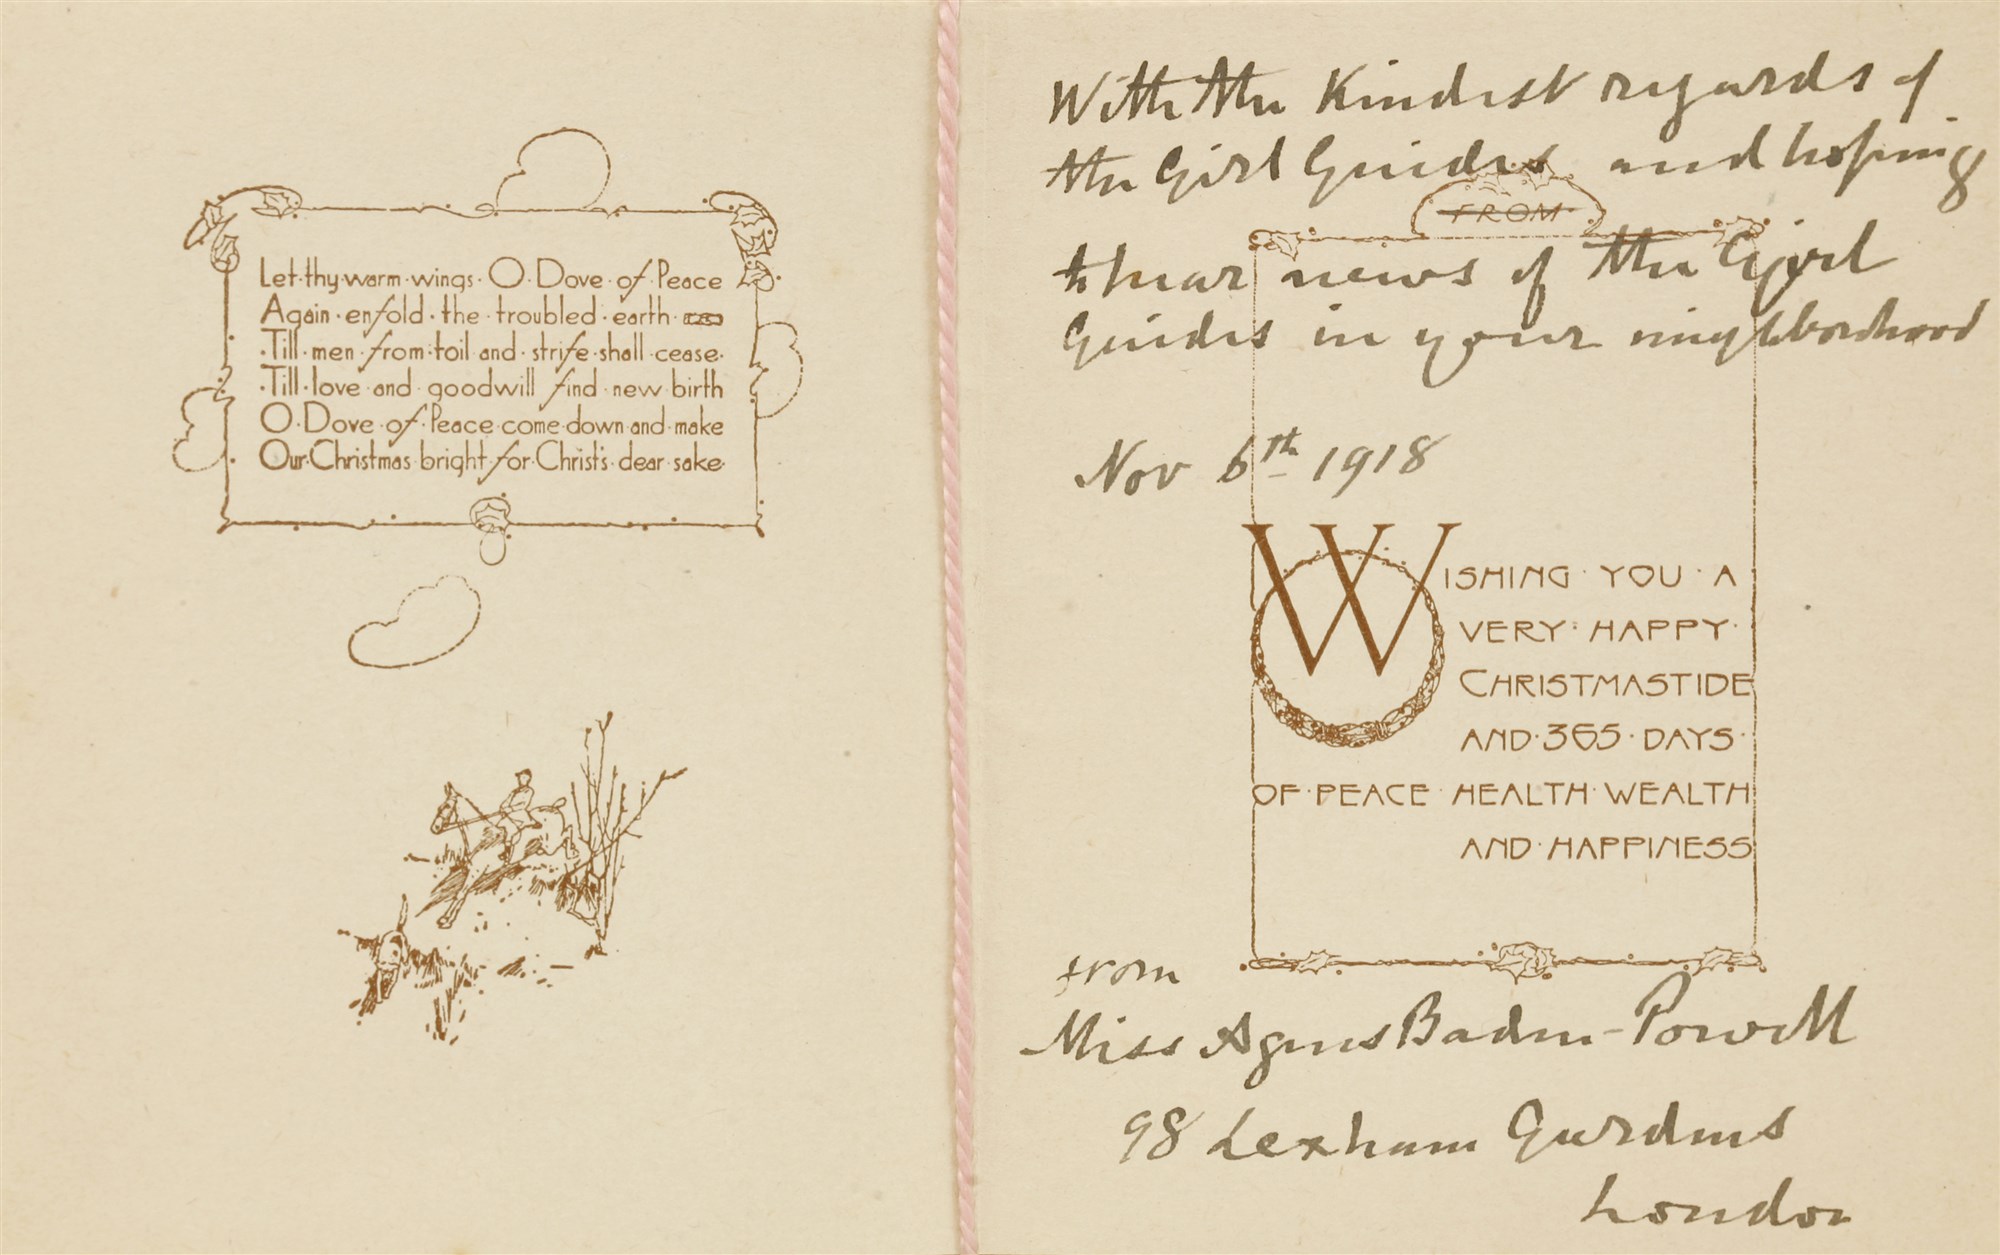 Let thy warm wings O Dove of Peace
Again enfold the troubled earth
Till men from toil and strife shall cease
Till love and goodwill find new birth
O Dove of Peace come down and make
Our Christmas bright for Christ's dear sake
With the Kindest regards of
the Girl Guides and hoping
FROM
to hear news of the Girl
Guides in your neighborhood
Nov 6th 1918
WISHING YOU A
VERY HAPPY
CHRISTMASTIDE
AND 365 DAYS
OF PEACE HEALTH WEALTH
AND HAPPINESS
from
Miss Agnes Baden-Powell
98 Lexham Gardens
London